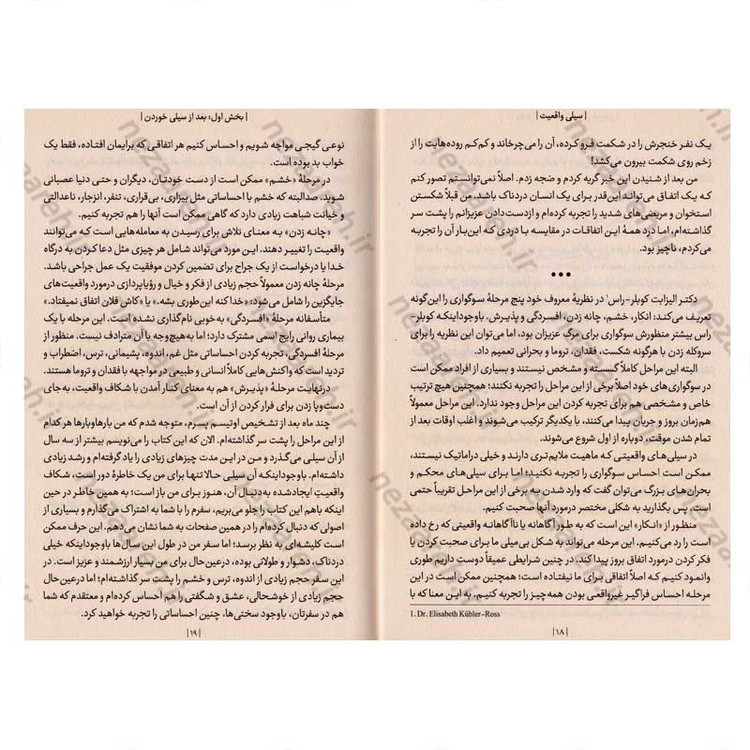 | سیلی واقعیت |
یـک نفـر خنجـرش را در شکمت فرو کرده، آن را می‌چرخاند و کم‌کم روده‌هایت را از
زخم روی شکمت بیرون می‌کشد!
من بعد از شنیدن این خبر گریه کردم و ضجه زدم. اصلاً نمی‌توانستم تصور کنم
که یـک اتفـاق می‌توانـد این‌قدر بـرای یک انسان دردناک باشـد. من قبلاً شکستن
استخوان و مریضی‌های شدید را تجربه کرده‌ام و ازدست‌دادن عزیزانم را پشت سر
گذاشته‌ام، امـا درد همـۀ ایـن اتفاقـات در مقایسـه با دردی کـه این‌بار آن را تجربه
می‌کردم، ناچیز بود.
•••
دکتـر الیزابت کوبلر-راس¹ در نظریۀ معروف خود پنج مرحلۀ سوگواری را این‌گونه
تعریف می‌کند: انکار، خشم، چانه زدن، افسردگی و پذیـرش. باوجوداینکه کوبلر-
راس بیشتر منظورش سوگواری برای مرگ عزیزان بود، اما می‌توان این نظریه را برای
سروکله زدن با هرگونه شکست، فقدان، تروما و بحرانی تعمیم داد.
البته این مراحل کاملاً گسسته و مشخص نیستند و بسیاری از افراد ممکن است
در سوگواری‌های خود اصلاً برخی از این مراحل را تجربه نکنند؛ همچنین هیچ ترتیب
خاص و مشخصی هم برای تجربه کردن این مراحل وجود ندارد. این مراحل معمولاً
هم‌زمان بروز و جریان پیدا می‌کنند، با یکدیگر ترکیب می‌شوند و اغلب اوقات بعد از
تمام شدن موقت، دوباره از اول شروع می‌شوند.
در سیلی‌های واقعیتی که ماهیت ملایم‌تری دارند و خیلی دراماتیک نیستند،
ممکن است احساس سوگواری را تجربـه نکنیـد؛ اما برای سیلی‌های محکـم و
بحران‌های بزرگ می‌توان گفت که وارد شدن به برخی از این مراحل تقریباً حتمی
است، پس بگذارید به شکلی مختصر درمورد آنها صحبت کنیم.
منظـور از «انکـار» این اسـت که به طـور آگاهانه یا ناآگاهانه واقعیتی که رخ داده
است را رد می‌کنیم. این مرحله می‌تواند به شکل بی‌میلی ما برای صحبت کردن یا
فکر کردن درمورد اتفاق بروز پیدا کند. در چنین شرایطی عمیقاً دوست داریم طوری
وانمـود کنیـم کـه اصلاً اتفاقی برای ما نیفتاده است؛ همچنین ممکن است در این
مرحلـه احساس فراگیر غیرواقعی بودن همه‌چیز را تجربه کنیم. به این معنا که با
1. Dr. Elisabeth Kübler-Ross
| ۱۸ |
| بخش اول: بعد از سیلی خوردن |
نوعی گیجی مواجه شویم و احساس کنیم هر اتفاقی که برایمان افتاده، فقط یک
خواب بد بوده است.
در مرحلۀ «خشم» ممکن است از دست خودتان، دیگران و حتی دنیا عصبانی
شوید. صدالبته که خشم با احساساتی مثل بیزاری، بی‌قراری، تنفر، انزجار، ناعدالتی
و خیانت شباهت زیادی دارد که گاهی ممکن است آنها را هم تجربه کنیم.
«چانه زدن» به معنای تلاش برای رسیدن به معامله‌هایی است کـه می‌توانند
واقعیت را تغییر دهند. این مورد می‌تواند شامل هر چیزی مثل دعا کردن به درگاه
خدا یا درخواست از یک جراح برای تضمین کردن موفقیت یک عمل جراحی باشد.
مرحلۀ چانه زدن معمولاً حجم زیادی از فکر و خیال و رؤیاپردازی درمورد واقعیت‌های
جایگزین را شامل می‌شود: «خدا کنه این‌طوری بشه.» یا «کاش فلان اتفاق نمیفتاد.»
متأسفانه مرحلۀ «افسردگی» به‌خوبی نام‌گذاری نشده است. این مرحله با یک
بیماری روانی رایج اسمی مشترک دارد؛ اما به‌هیچ‌وجه با آن مترادف نیست. منظور از
مرحلۀ افسردگی، تجربه کردن احساساتی مثل غم، اندوه، پشیمانی، ترس، اضطراب و
تردید است که واکنش‌هایی کاملاً انسانی و طبیعی در مواجهه با فقدان و تروما هستند.
درنهایت مرحلۀ «پذیـرش» هم به معنای کنار آمدن با شکاف واقعیت، به‌جای
دست‌وپا زدن برای فرار کردن از آن است.
چند ماه بعد از تشخیص اوتیسم پسرم، متوجه شدم که من بارهاوبارها هر کدام
از این مراحل را پشت سر گذاشته‌ام. الان که این کتاب را می‌نویسم بیشتر از سه سال
از آن سیلی می‌گذرد و من در این مدت چیزهای زیادی را یاد گرفته‌ام و رشد زیادی
داشته‌ام. باوجوداینکه آن سیلی حالا تنها برای من یک خاطرۀ دور است، شکاف
واقعیتِ ایجادشده به‌دنبال آن، هنـوز برای من باز است؛ به همین خاطر در حین
اینکه باهم این کتاب را جلو می‌بریم، سفرم را با شما به اشتراک می‌گذارم و بسیاری از
اصولی که دنبال کرده‌ام را در همین صفحات به شما نشان می‌دهم. این حرف ممکن
است کلیشه‌ای به نظر برسد؛ اما سفر من در طول این سال‌ها باوجوداینکه خیلی
دردناک، دشوار و طولانی بوده، درعین‌حال برای من بسیار ارزشمند و عزیز است. در
این سفر حجم زیادی از اندوه، ترس و خشم را پشت سر گذاشته‌ام؛ اما درعین‌حال
حجم زیادی از خوشحالی، عشق و شگفتی را هم احساس کرده‌ام و معتقدم که شما
هم در سفرتان، باوجود سختی‌ها، چنین احساساتی را تجربه خواهید کرد.
| ۱۹ |
nezaafeh.ir